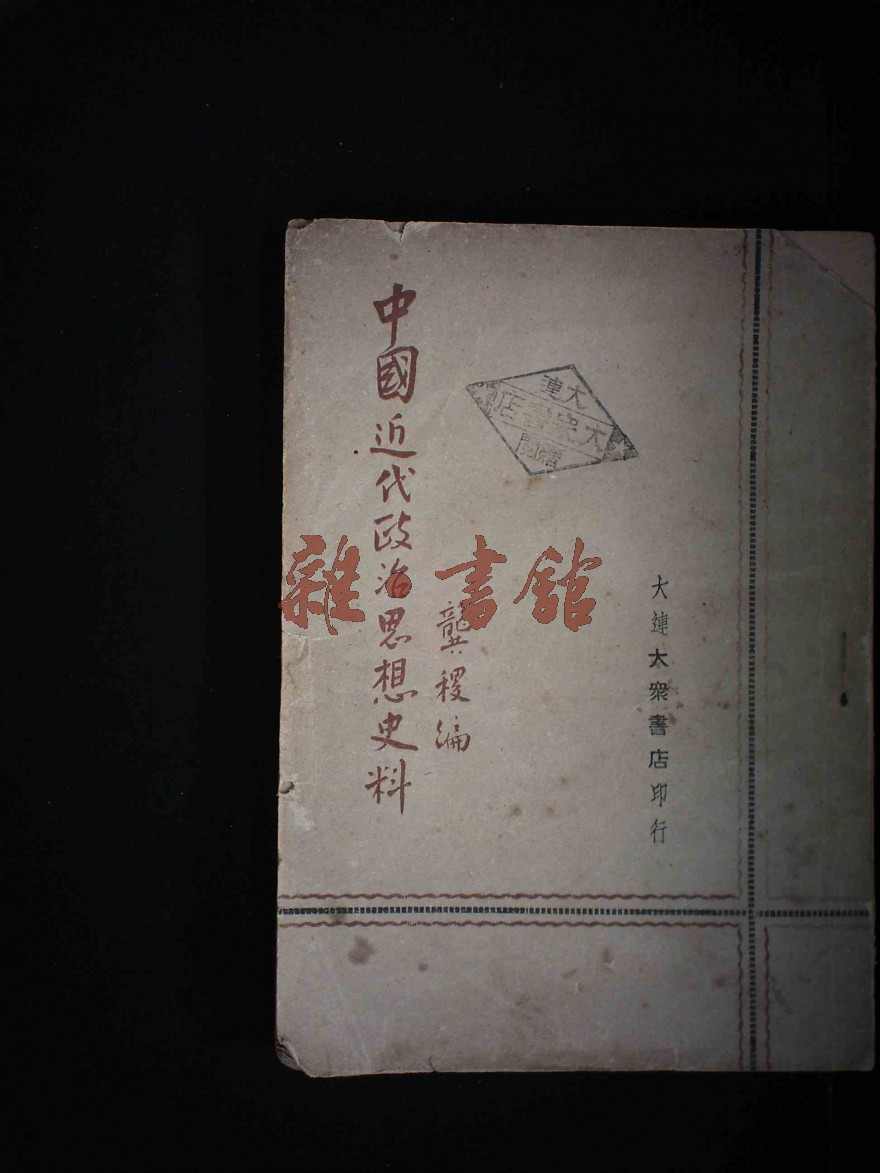 中國近代政治思想史料
龔稷編
大連大衆書店印行
大連
大衆書店
雜書館